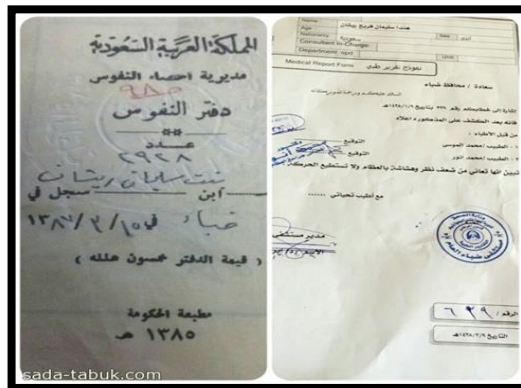 المملكة العربية السعودية
مديرية احصاء النفوس
٩٨٥
دفتر النفوس
**
عدد
٢٩٢٨
بنت سليمان ريشان
ابن سجل في
ضباء في ١٥/٣/١٣٨٧
( قيمة الدفتر خمسون هلله )
مطبعة الحكومة
١٣٨٥ هـ
sada-tabuk.com
Name
Age
Nationality سعودية Sex أنثى
Consultant In-Charge
Department: opd Unit
Medical Report Form نموذج تقرير طبي
سعادة / محافظ ضباء
السلام عليكم ورحمة الله وبركاته
فإنه بعد الكشف على المذكورة اعلاه
من قبل الأطباء :
١ - الطبيب / محمد الموسى التوقيع
٢ - الطبيب / محمد انور التوقيع
تبين انها تعاني من ضعف نظر وهشاشة بالعظام ولا تستطيع الحركة
مع أطيب تحياتي ......
مدير مستشفى
الرقم / ٦٣٩
التاريخ